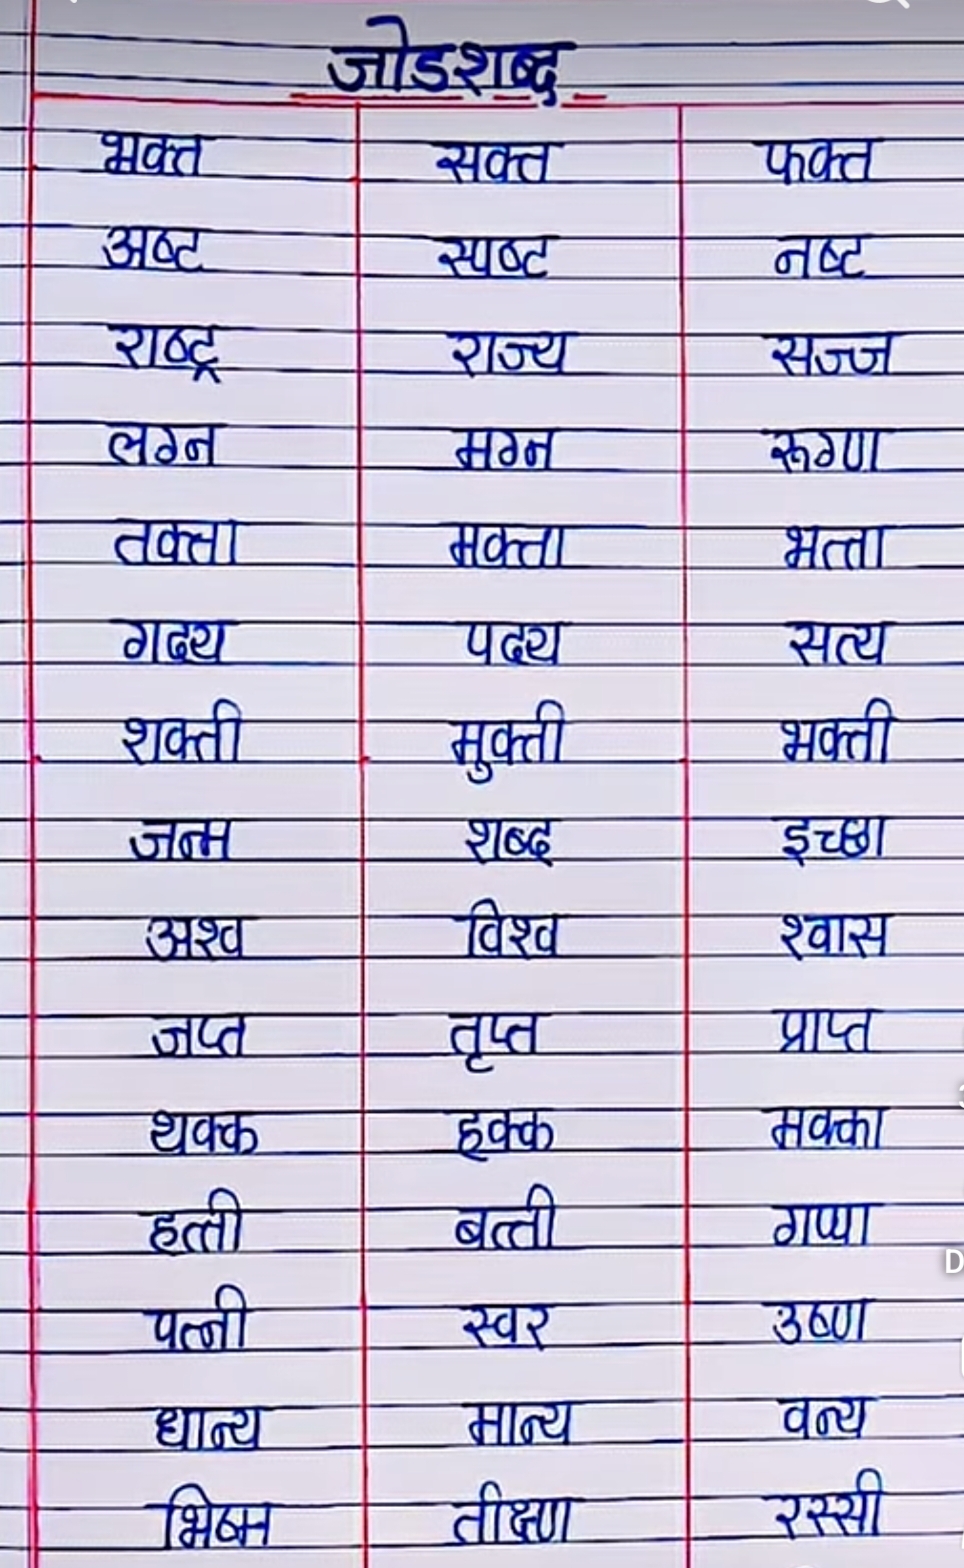 जोडशब्द
भक्त सक्त फक्त
अष्ट स्पष्ट नष्ट
राष्ट्र राज्य सज्ज
लग्न मग्न रूग्ण
तक्ता मक्ता भत्ता
गद्य पद्य सत्य
शक्ती मुक्ती भक्ती
जन्म शब्द इच्छा
अश्व विश्व श्वास
जप्त तृप्त प्राप्त
थक्क हक्क मक्का
हत्ती बत्ती गप्पा
पत्नी स्वर उष्ण
धान्य मान्य वन्य
भिष्म तीक्ष्ण रस्सी